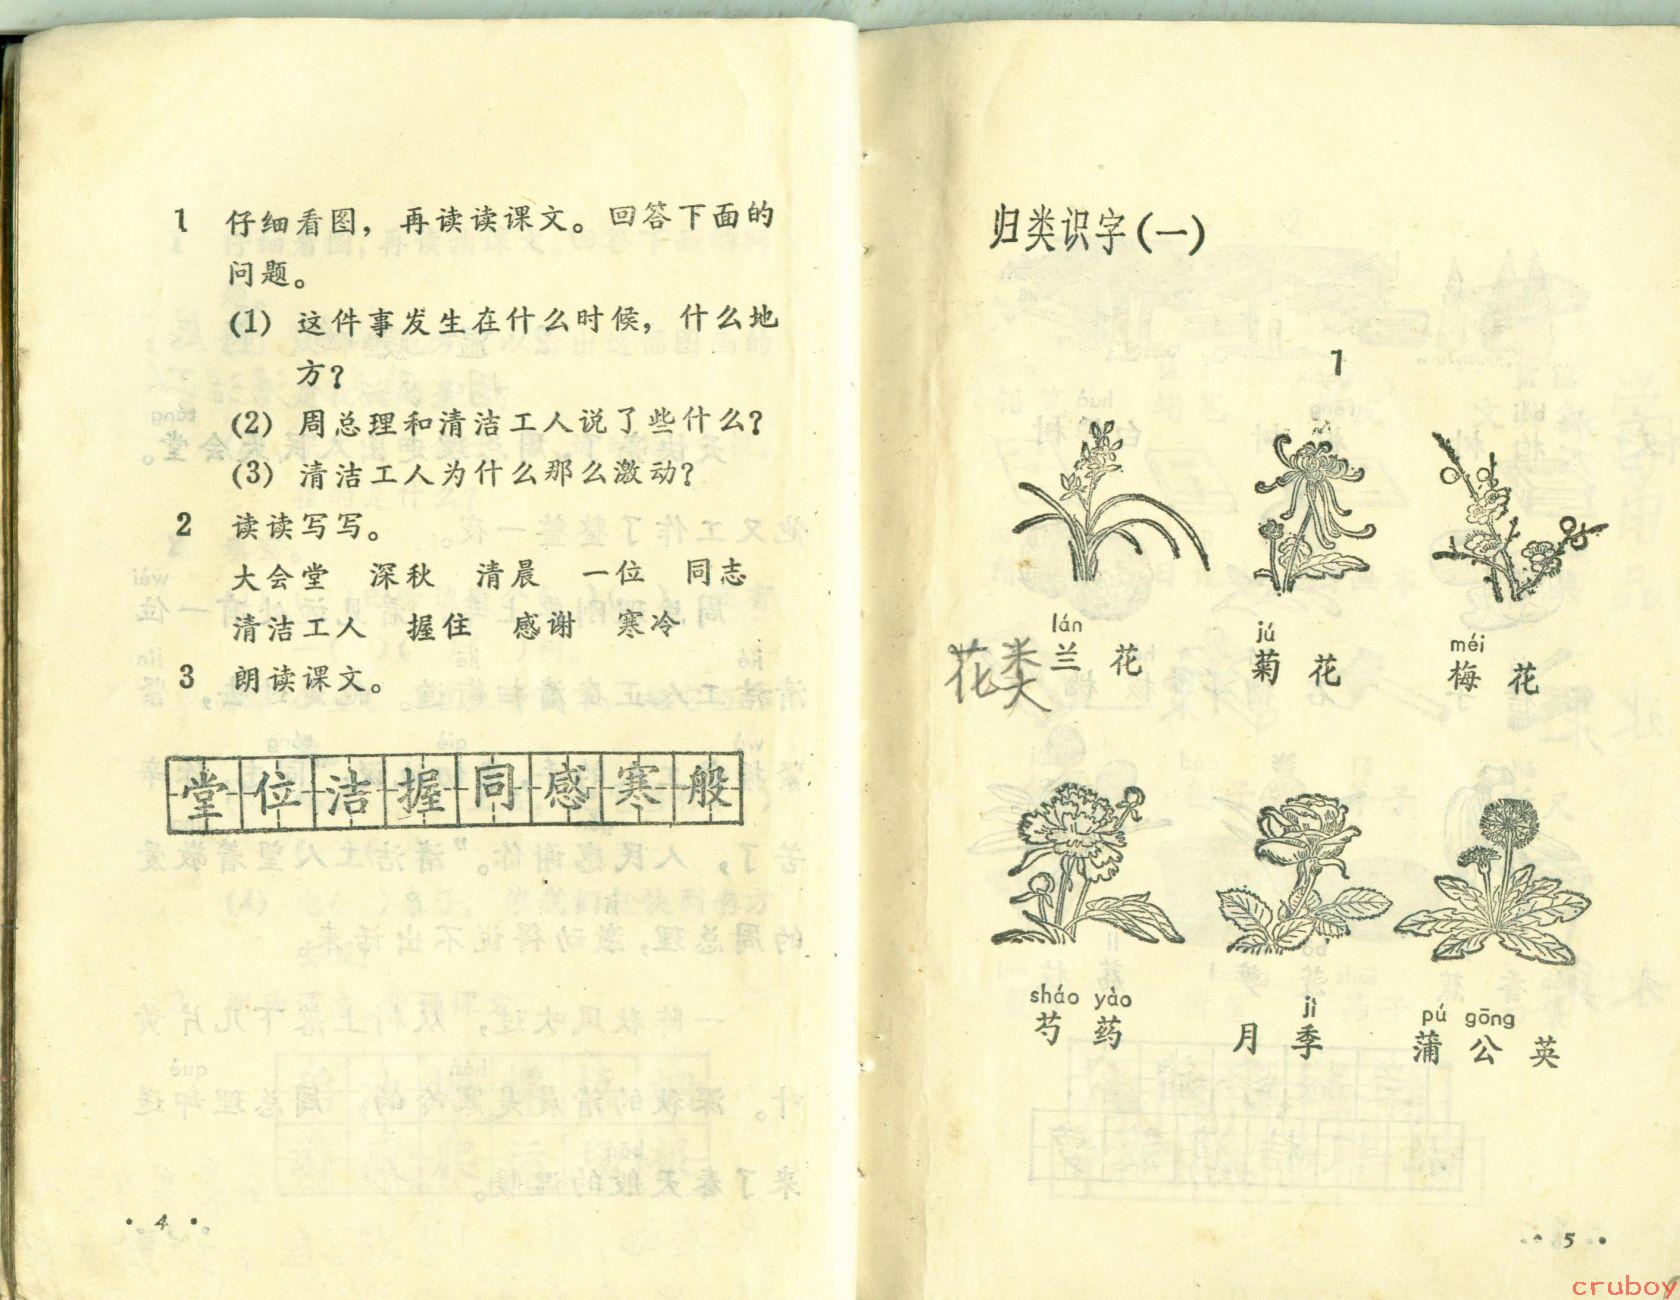 1 仔细看图，再读读课文。回答下面的
问题。
(1) 这件事发生在什么时候，什么地
方？
(2) 周总理和清洁工人说了些什么？
(3) 清洁工人为什么那么激动？
2 读读写写。
大会堂 深秋 清晨 一位 同志
清洁工人 握住 感谢 寒冷
3 朗读课文。
堂位洁握同感寒般
· 4 ·
归类识字(一)
1
lán
兰 花
jú
菊 花
méi
梅 花
花类
sháo yào
芍 药
jì
月 季
pú gōng
蒲 公 英
· 5 ·
cruboy